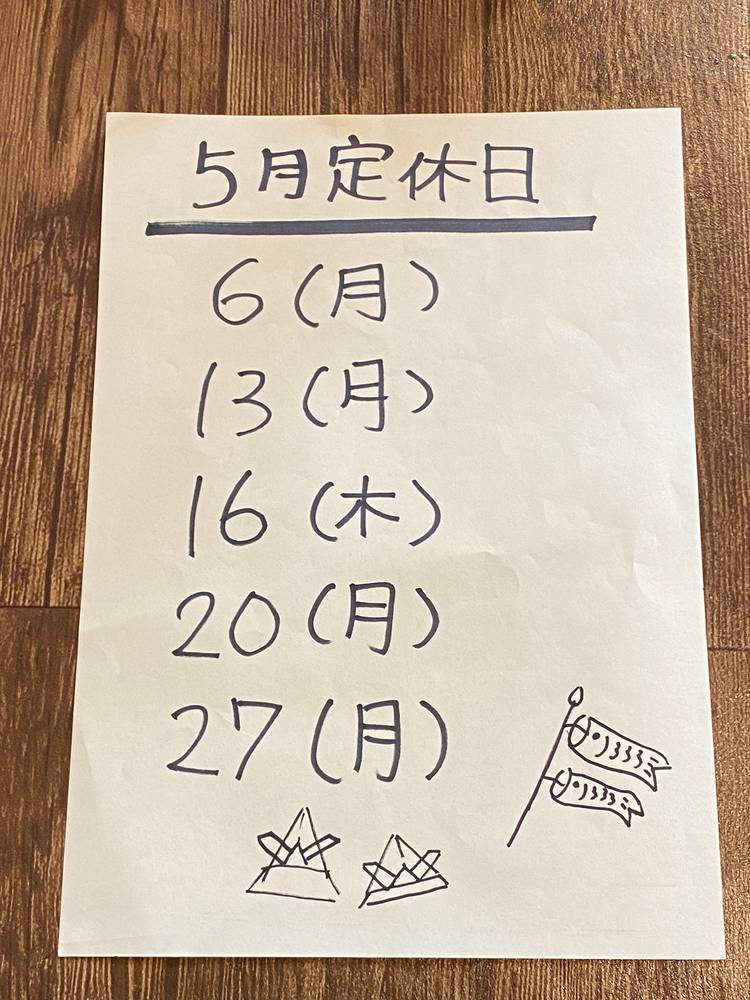 5月定休日
6(月)
13(月)
16(木)
20(月)
27(月)